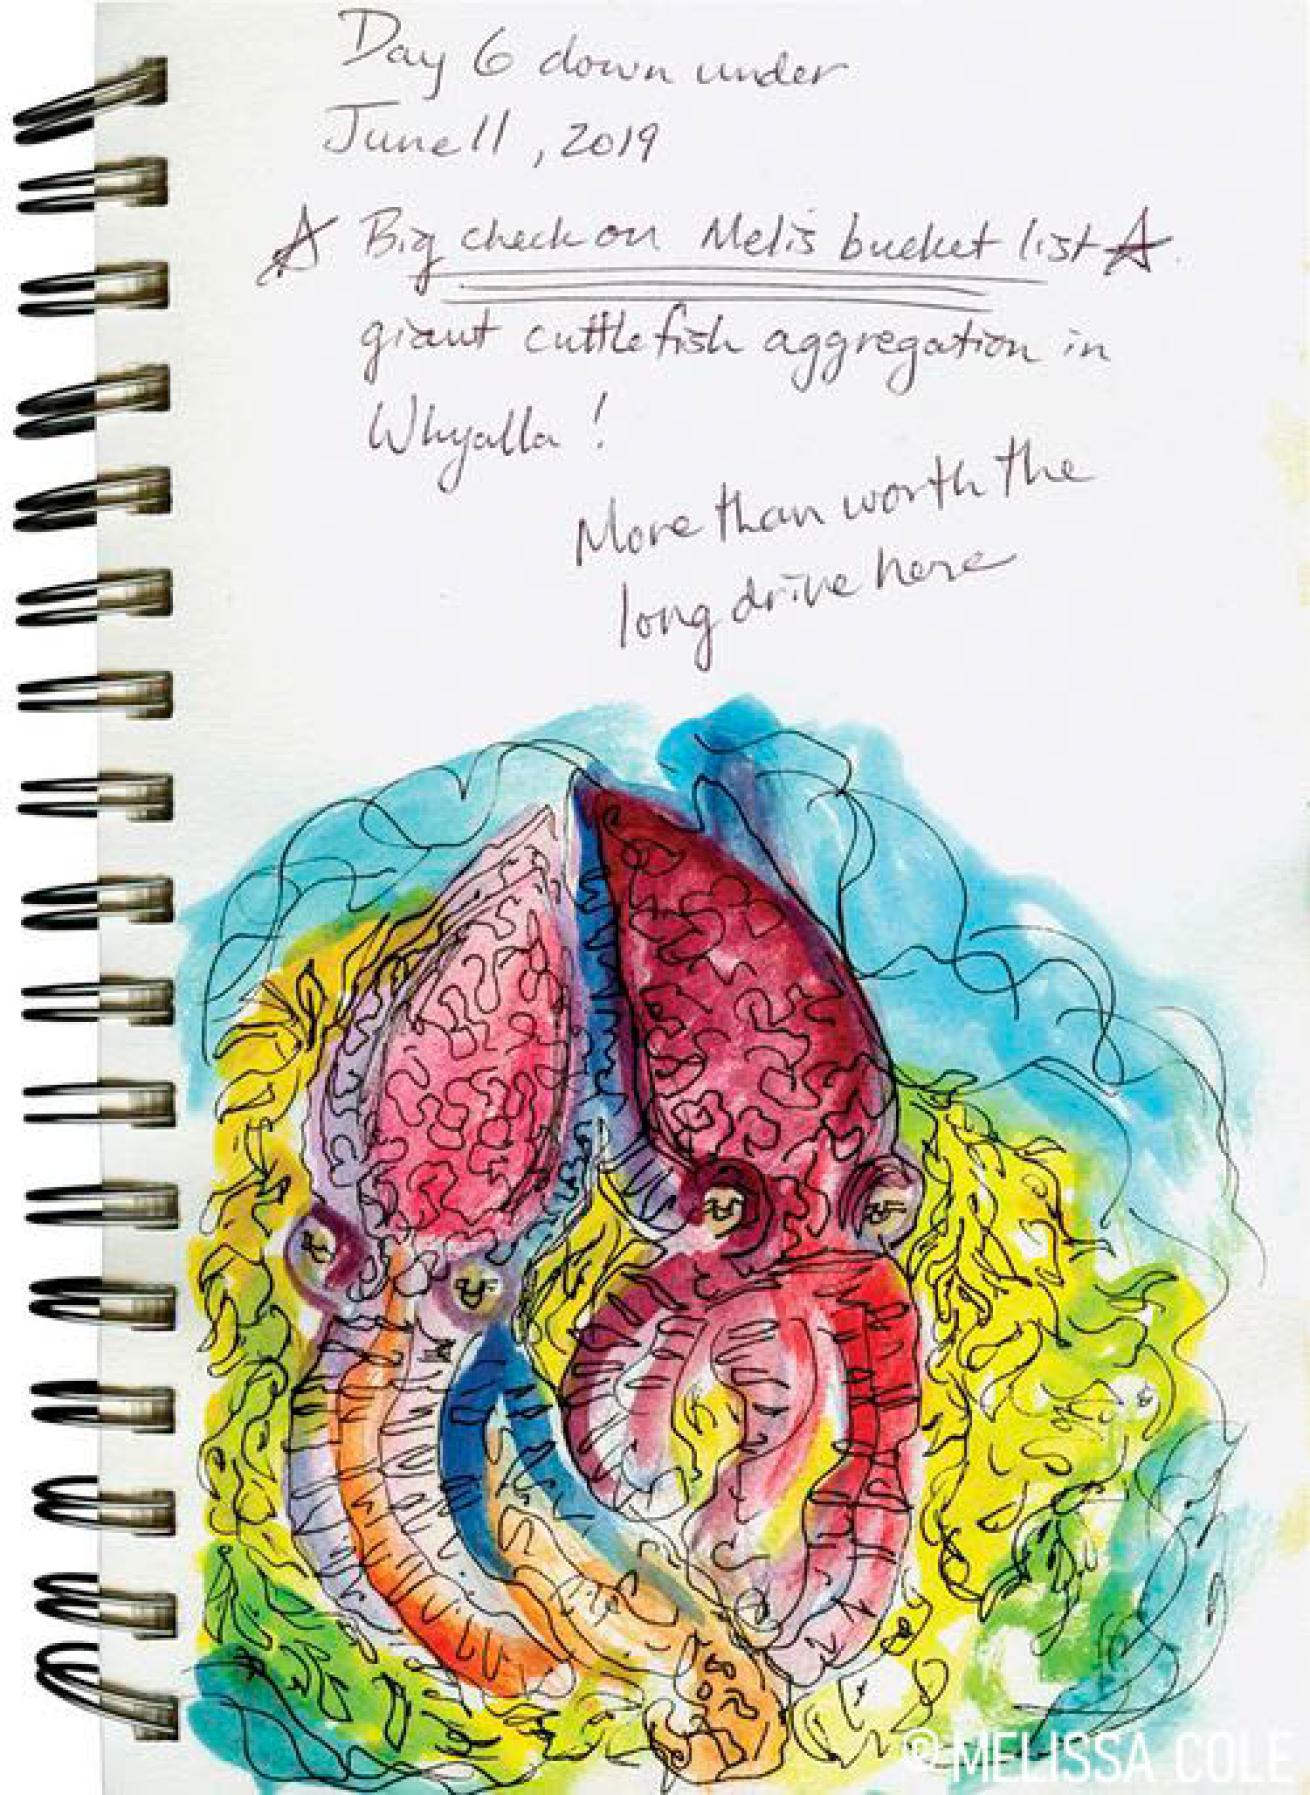 Day 6 down under
June 11, 2019
☆ Big check on Mel's bucket list ☆
giant cuttlefish aggregation in
Whyalla!
More than worth the
long drive here
©MELISSA COLE